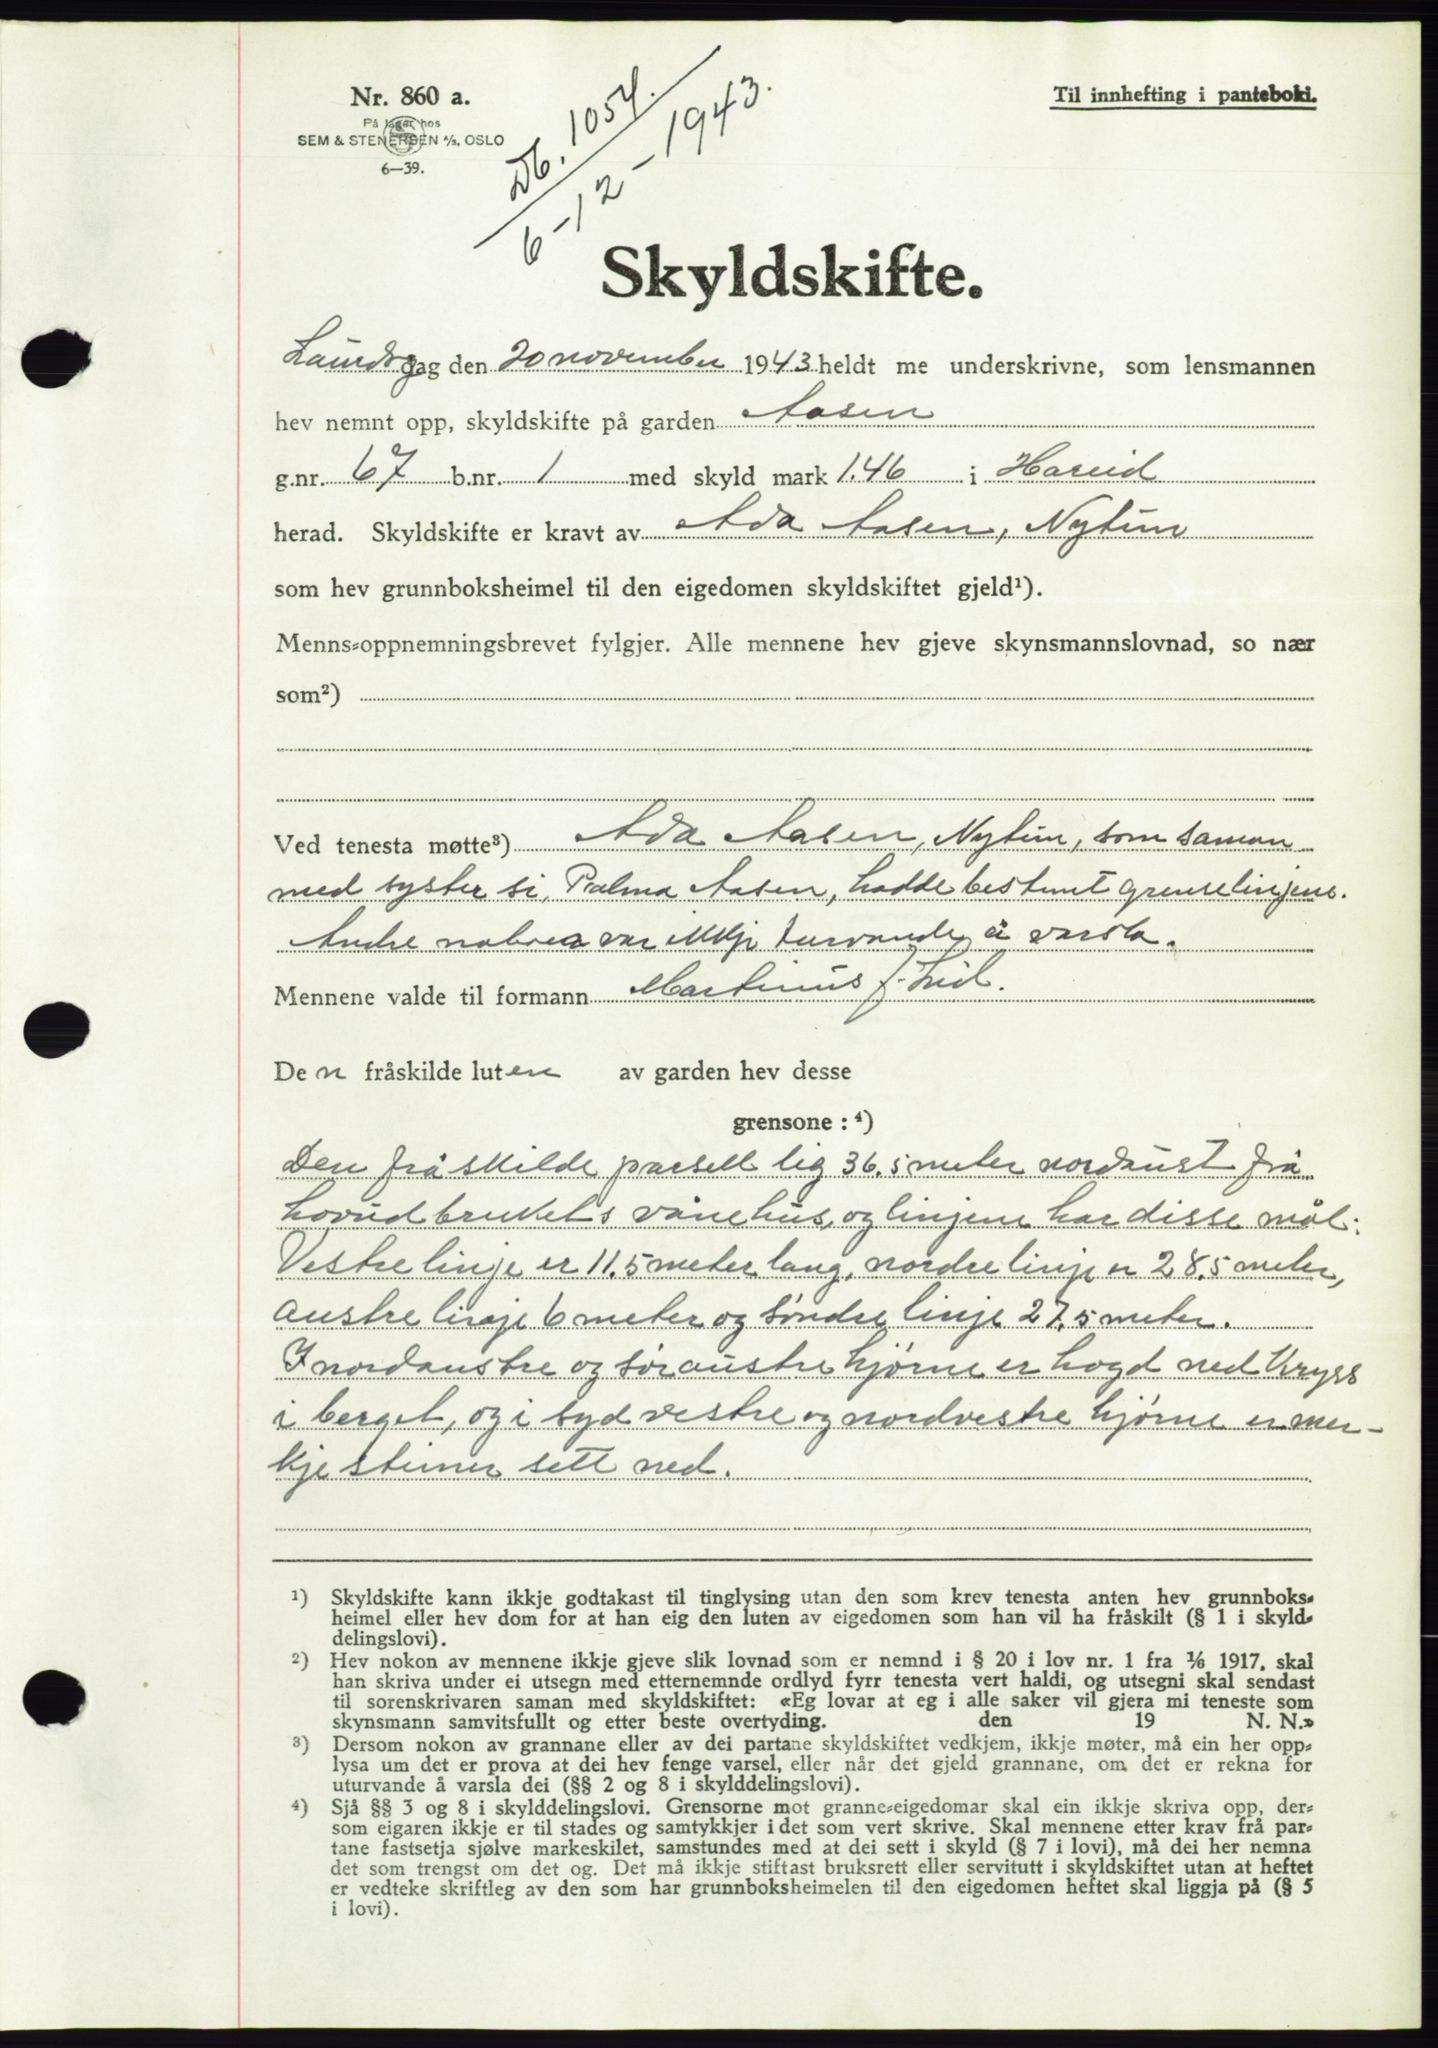 Nr. 860 a.
På lager hos
SEM & STENERSEN A/S, OSLO
6—39.
Db. 1054.
6-12-1943.
Til innhefting i panteboki.
Skyldskifte.
Laurdag den 20 november 1943 heldt me underskrivne, som lensmannen
hev nemnt opp, skyldskifte på garden Aasen
g.nr. 67 b.nr. 1 med skyld mark 1.46 i Hareid
herad. Skyldskifte er kravt av Ada Aasen, Nytun
som hev grunnboksheimel til den eigedomen skyldskiftet gjeld¹).
Menns-oppnemningsbrevet fylgjer. Alle mennene hev gjeve skynsmannslovnad, so nær
som²)
Ved tenesta møtte³) Ada Aasen, Nytun, som saman
med syster si, Palma Aasen, hadde bestemt grenselinjene.
Andre naboar var ikkje turvande å varsla.
Mennene valde til formann Martinus J. Lid.
Den fråskilde luten av garden hev desse
grensone: ⁴)
Den fråskilde parsell lig 36.5 meter nordaust frå
hovudbrukets vånehus, og linjene har disse mål:
Vestre linje er 11.5 meter lang, nordre linje er 28.5 meter,
austre linje 6 meter og søndre linje 27.5 meter.
I nordaustre og søraustre hjørne er hogd ned kryss
i berget, og i sydvestre og nordvestre hjørne er mer-
kjesteiner sett ned.
¹) Skyldskifte kann ikkje godtakast til tinglysing utan den som krev tenesta anten hev grunnboks-
heimel eller hev dom for at han eig den luten av eigedomen som han vil ha fråskilt (§ 1 i skyld-
delingslovi).
²) Hev nokon av mennene ikkje gjeve slik lovnad som er nemnd i § 20 i lov nr. 1 fra 1/6 1917, skal
han skriva under ei utsegn med etternemnde ordlyd fyrr tenesta vert haldi, og utsegni skal sendast
til sorenskrivaren saman med skyldskiftet: «Eg lovar at eg i alle saker vil gjera mi teneste som
skynsmann samvitsfullt og etter beste overtyding. den 19 N. N.»
³) Dersom nokon av grannane eller av dei partane skyldskiftet vedkjem, ikkje møter, må ein her opp-
lysa um det er prova at dei hev fenge varsel, eller når det gjeld grannane, om det er rekna for
uturvande å varsla dei (§§ 2 og 8 i skylddelingslovi).
⁴) Sjå §§ 3 og 8 i skylddelingslovi. Grensorne mot granne-eigedomar skal ein ikkje skriva opp, der-
som eigaren ikkje er til stades og samtykkjer i det som vert skrive. Skal mennene etter krav frå par-
tane fastsetja sjølve markeskilet, samstundes med at dei sett i skyld (§ 7 i lovi), må dei her nemna
det som trengst om det og. Det må ikkje stiftast bruksrett eller servitutt i skyldskiftet utan at heftet
er vedteke skriftleg av den som har grunnboksheimelen til den eigedomen heftet skal liggja på (§ 5
i lovi).